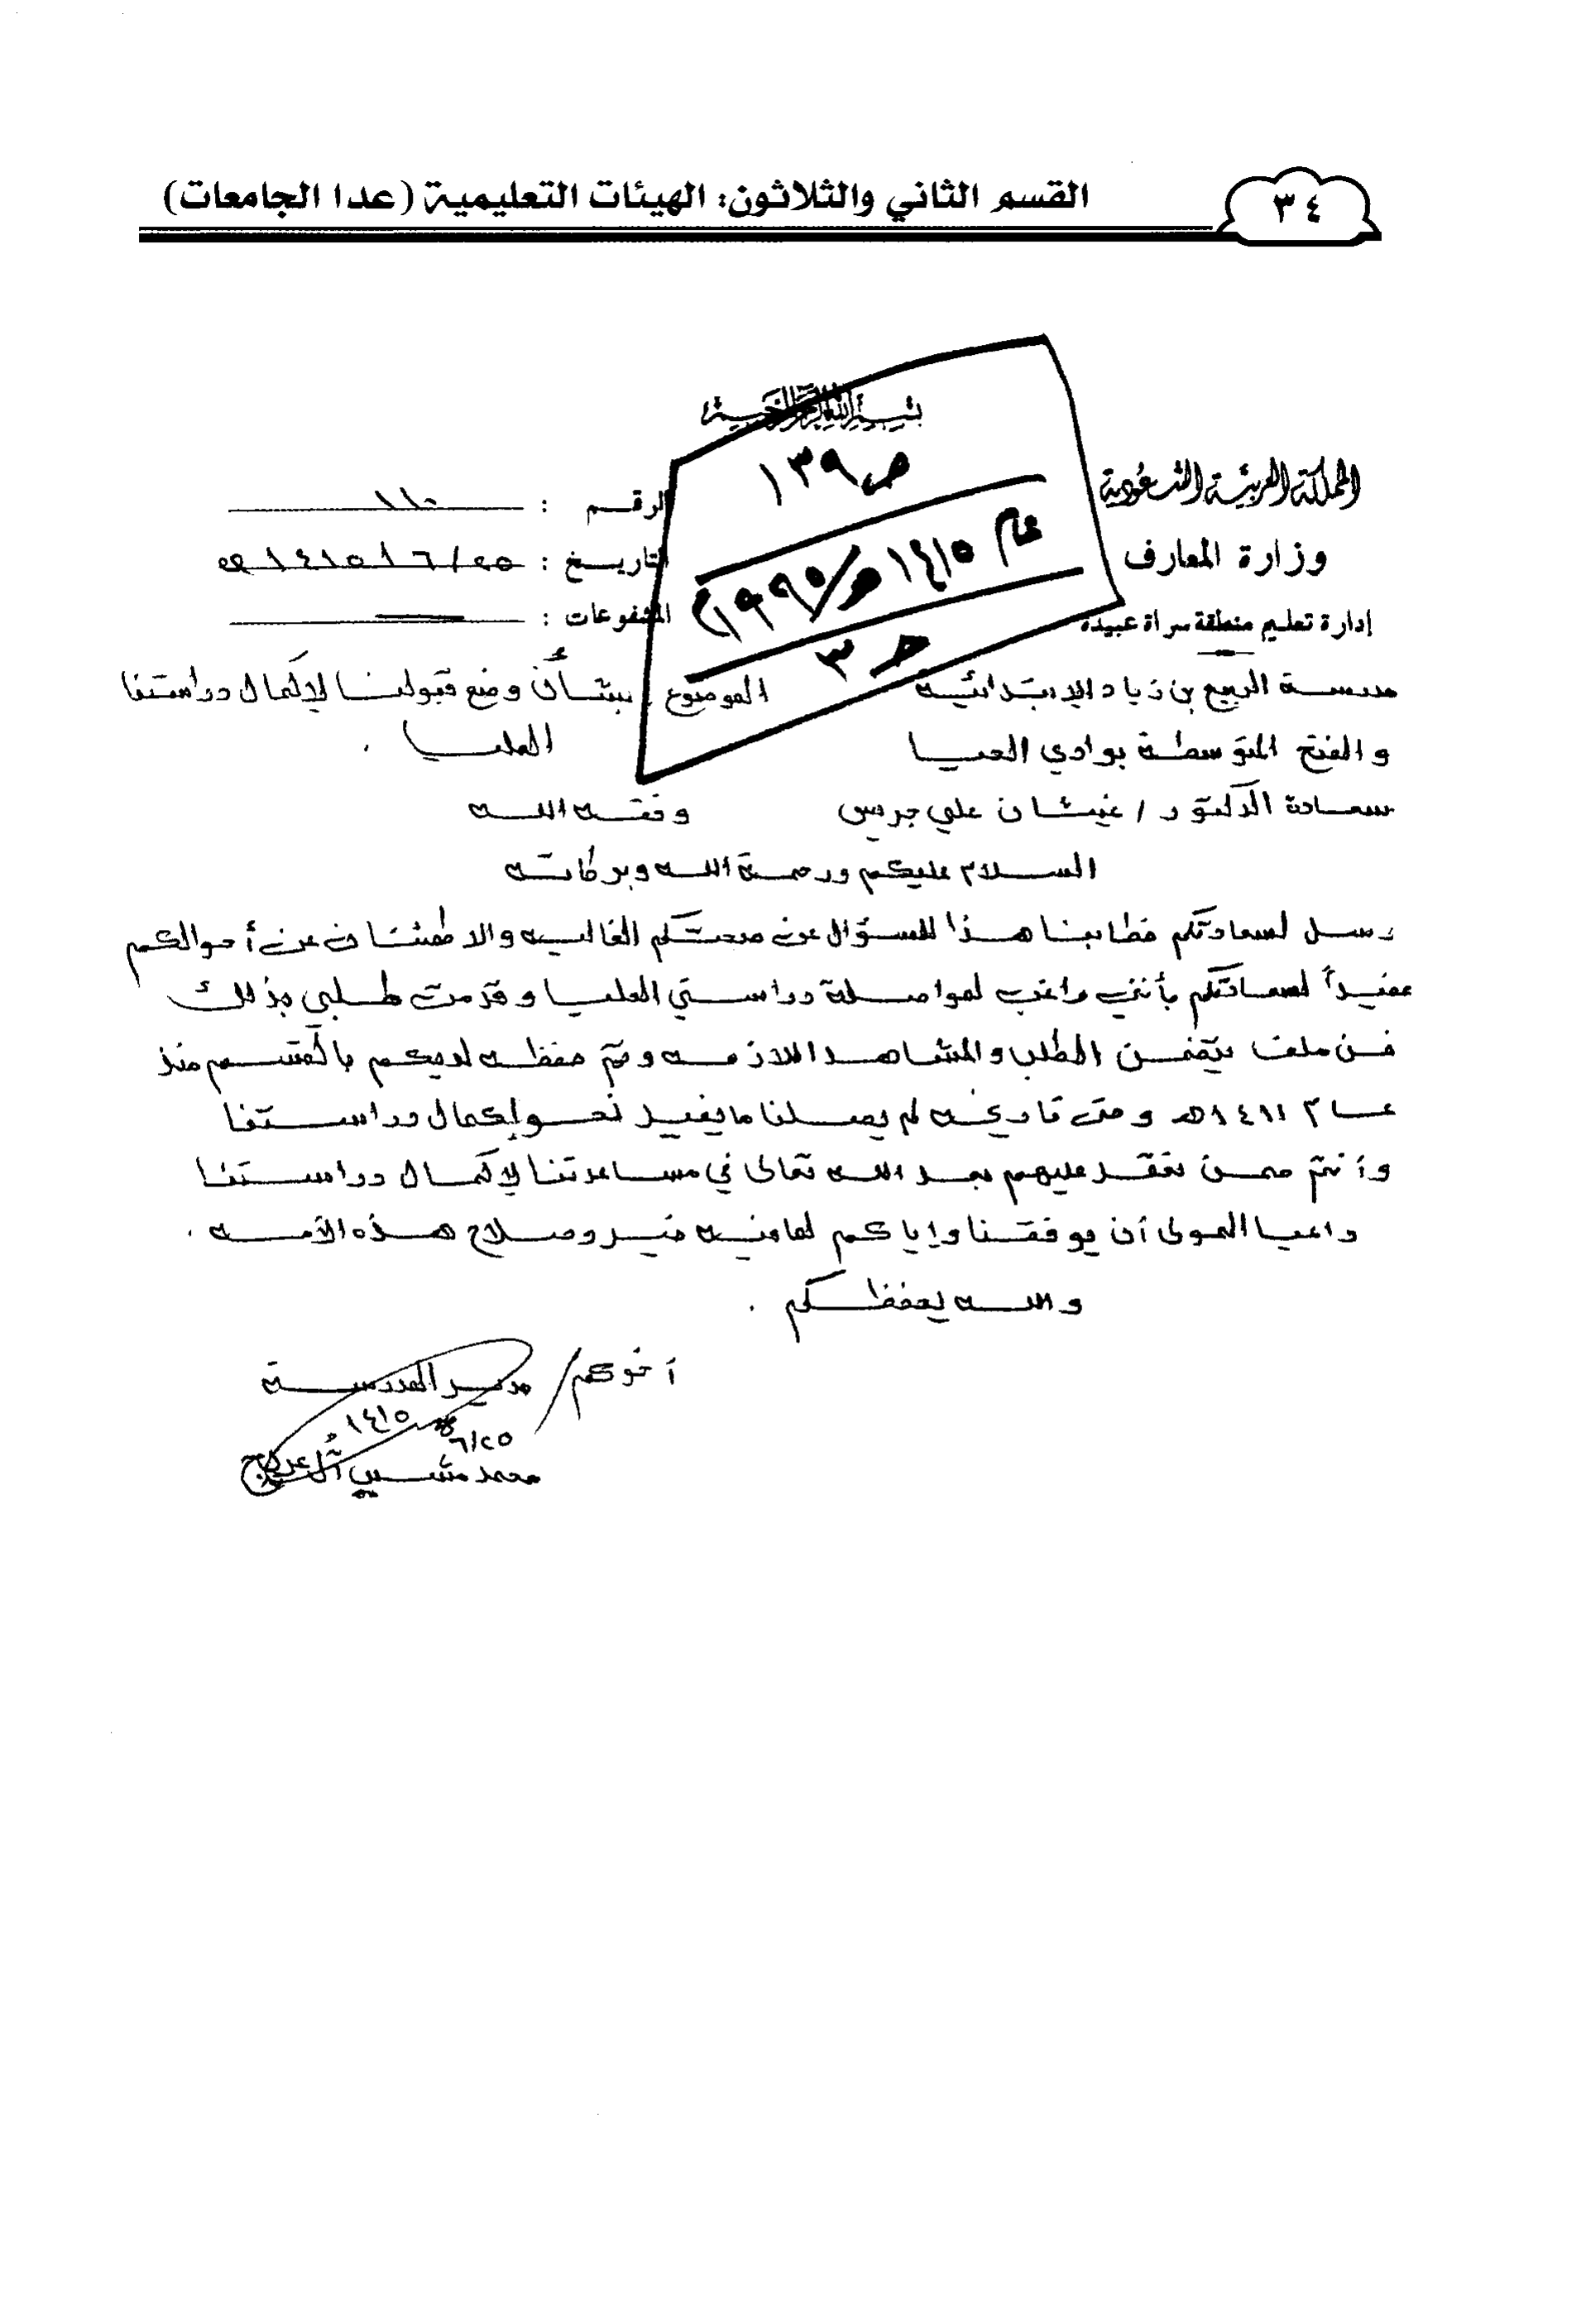 ٣٤
القسم الثاني والثلاثون: الهيئات التعليمية (عدا الجامعات)
بسم الله الرحمن الرحيم
ص ١٣٩
عام ١٤١٥هـ/١٩٩٥م
حـ ٣
المملكة العربية السعودية
وزارة المعارف
إدارة تعليم منطقة سراة عبيدة
مدرسة الربيع بن زياد الابتدائيه
والفتح المتوسطة بوادي الحيا
الرقم : ١١٠
التاريخ : ٢٥/٦/١٤١٥هـ
المشفوعات :
الموضوع : بشأن وضع قبولنا لإكمال دراستنا
العليا .
سعادة الدكتور / غيثان علي جريس وفقه الله
السلام عليكم ورحمة الله وبركاته
نرسل لسعادتكم خطابنا هذا للسؤال عن صحتكم الغاليه والاطمئنان عن أحوالكم
مفيداً لسعادتكم بأنني راغب لمواصلة دراستي العليا وقدمت طلبي بذلك
ضمن ملف يتضمن الطلب والمشاهد اللازمه وتم حفظه لديكم بالقسم منذ
عام ١٤١١هـ وحتى تاريخه لم يصلنا ما يفيد نحو إكمال دراستنا
وأنتم ممن نعقد عليهم بعد الله تعالى في مساعدتنا لإكمال دراستنا
داعيا المولى أن يوفقنا وإياكم لما فيه خير وصلاح هذه الأمه .
والله يحفظكم .
أخوكم / مدير المدرسة
٢٥/٦ ١٤١٥هـ
محمد مشبب آل